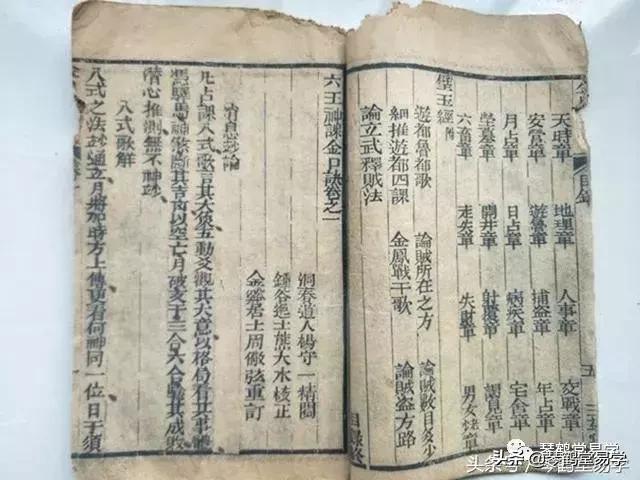 天時章 地理章 人事章 交戰章
安營章 遊魯章 捕盜章 年占章
月占章 日占章 疾病章 宅舍章
學墓章 開井章 射覆章 謁見章
六畜章 走失章 失財章 男女章
璧玉經
遊都魯都歌 論賊所在之方 論賊數目多少
細推遊都四課 金鳳戰干歌 論賊盜方路
論立武釋賊法
目錄終
六壬神課金口訣卷之一
洞春道人楊守一精閱
鍾谷逸士熊大木校正
金谿居士周儆弦重訂
凡占課入式歌言其大後五動爻觀其大意以格局看其事體
馬驛馬神歌斷其吉凶以空亡月破亥丁三合六合驗其成敗
潛心推測無不神妙
入式歌解
入式之法妙通玄月將加時方上傳更看何神同一位日干須
头条号
琴鹤堂易学